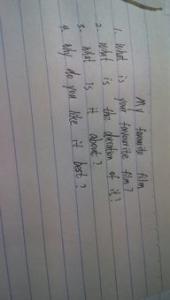 My favourite film
1. What is your favourite film?
2. What is the duration of it?
3. What is it about?
4. Why do you like it best?